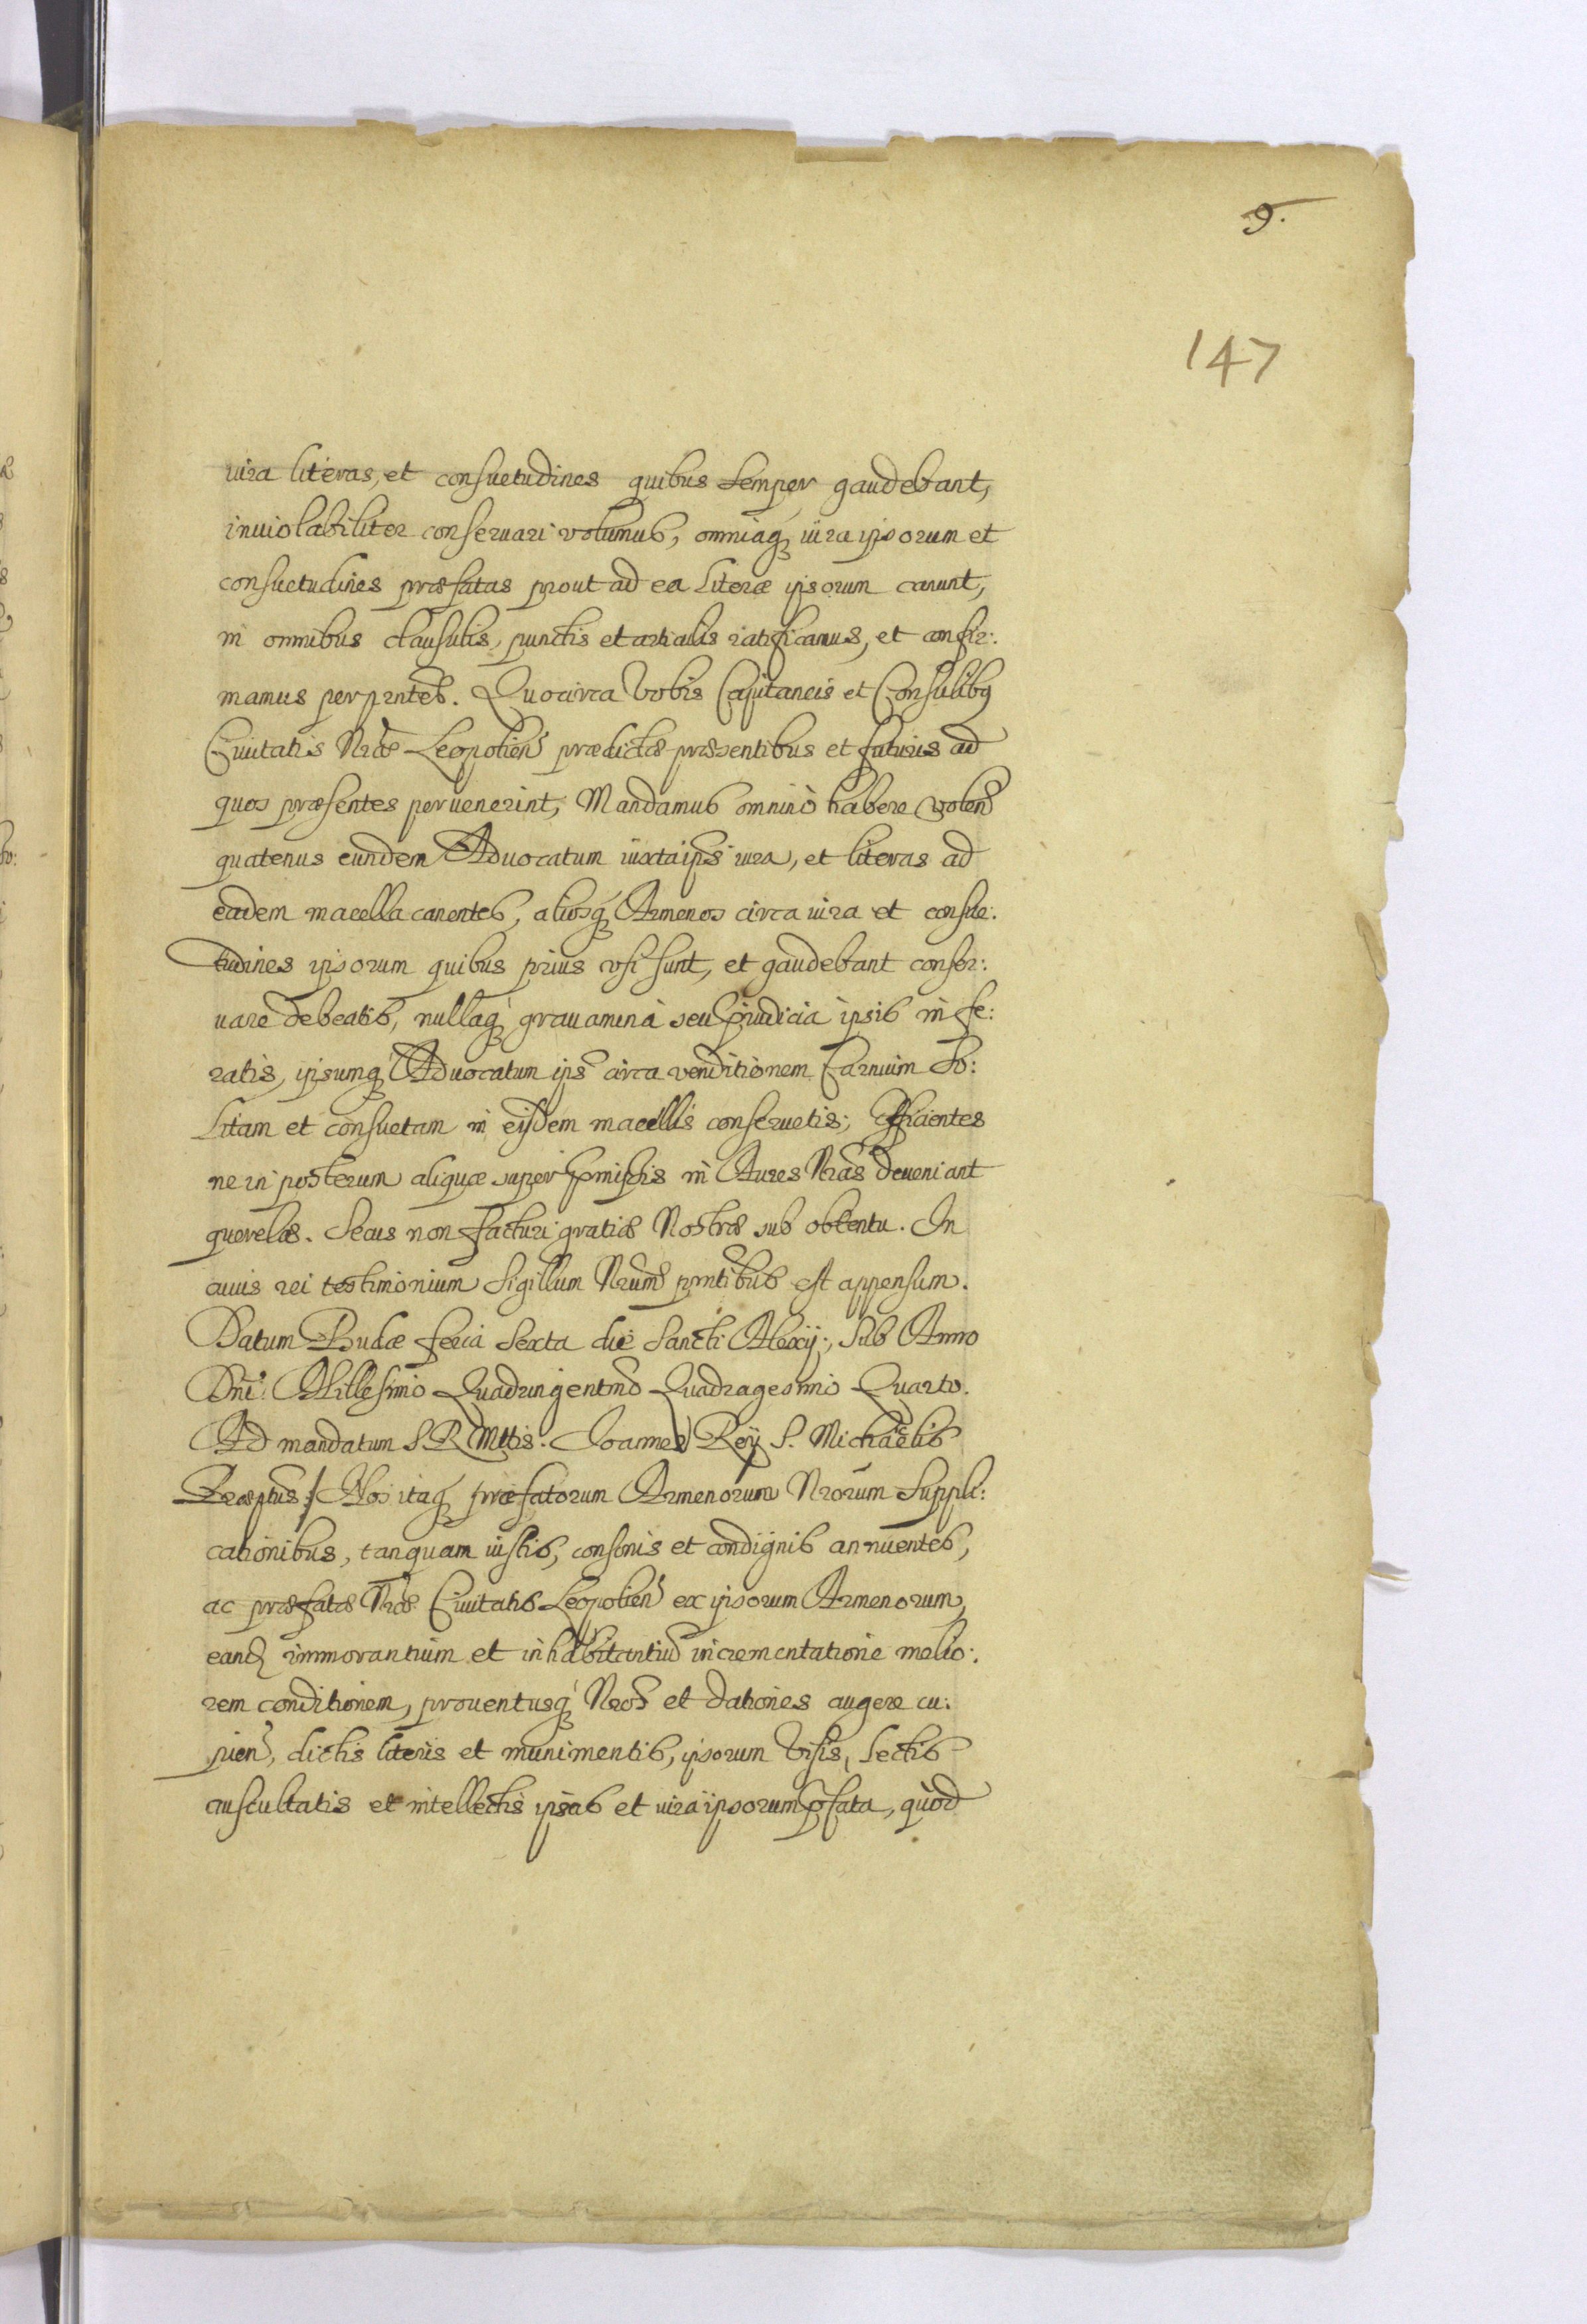 9.
147
iura literas, et consuetudines quibus semper gaudebant,
inuiolabiliter conseruari volumus, omniaq́ iura ipsorum et
consuetudines præfatas prout ad ea Literæ ipsorum canunt,
in omnibus clausulis, punctis et articulis ratificamus, et confir:
mamus per pn̄tes. Quocirca Vobis Capitaneis et Consulibq
Ciuitatis Nrǽ Leopolien̄ prædictæ præsentibus et futuris ad
quos præsentes peruenerint, Mandamus omninò habere volen̄
quatenus eundem Aduocatum iuxta ips̄ iura, et literas ad
eadem macella canentes, aliosq́ Armenos circa iura et consue:
tudines ipsorum quibus prius vsi sunt, et gaudebant conser:
uare debeatis, nullaq́ grauamina seu p̄iudicia ipsis infe:
ratis, ipsumq́ Aduocatum ips̄ circa venditionem Carnium So:
litam et consuetam in eisdem macellis conseruetis; Efficientes
ne in posterum aliquæ super p̄missis in Aures Nrās deueniant
querelæ. Secus non facturi gratiæ Nostræ sub obtentu. In
cuius rei testimonium Sigillum Nrūm pn̄tibus est appensum.
Datum Budæ feria sexta die Sancti Alexij, Sub Anno
Dn̄i: Millesimo Quadringentmō Quadragesimo Quarto.
Ad mandatum S. R. Mttis. Joannes Rey S. Michaelis
Præptus / Nos itaq́ præfatorum Armenorum Nrōrum suppli:
cationibus, tanquam iustis, consonis et condignis annuentes,
ac præfatæ Nrǽ Ciuitatis Leopolien̄ ex ipsorum Armenorum,
eand immorantium et inhabitantiū incrementatione melio:
rem conditionem, prouentusq́ Nrōs et dationes augere cu:
pien̄, dictis literis et munimentis, ipsorum Visis, Lectis
auscultatis et intellectis ipsas et iura ipsorum p̄fata, quòd